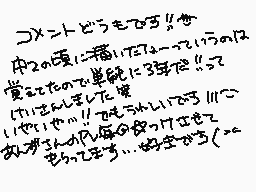 コメントどうもです!!
中2の頃に描いたなーっていうのは
覚えてたので単純に3年だ!!って
けいさんしました笑
いやいや…!!でもうれしいです!!!
あんずさんの 毎回 つけさせて
もらってます…好きです(